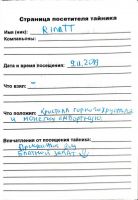 Страница посетителя тайника
Имя (ник): RinaTT
Компаньоны:
Дата и время посещения: 9.11.2019
Что взял: -
Что положил: Кристалл горного хрусталя
и монетку импортную
Впечатления от посещения тайника: